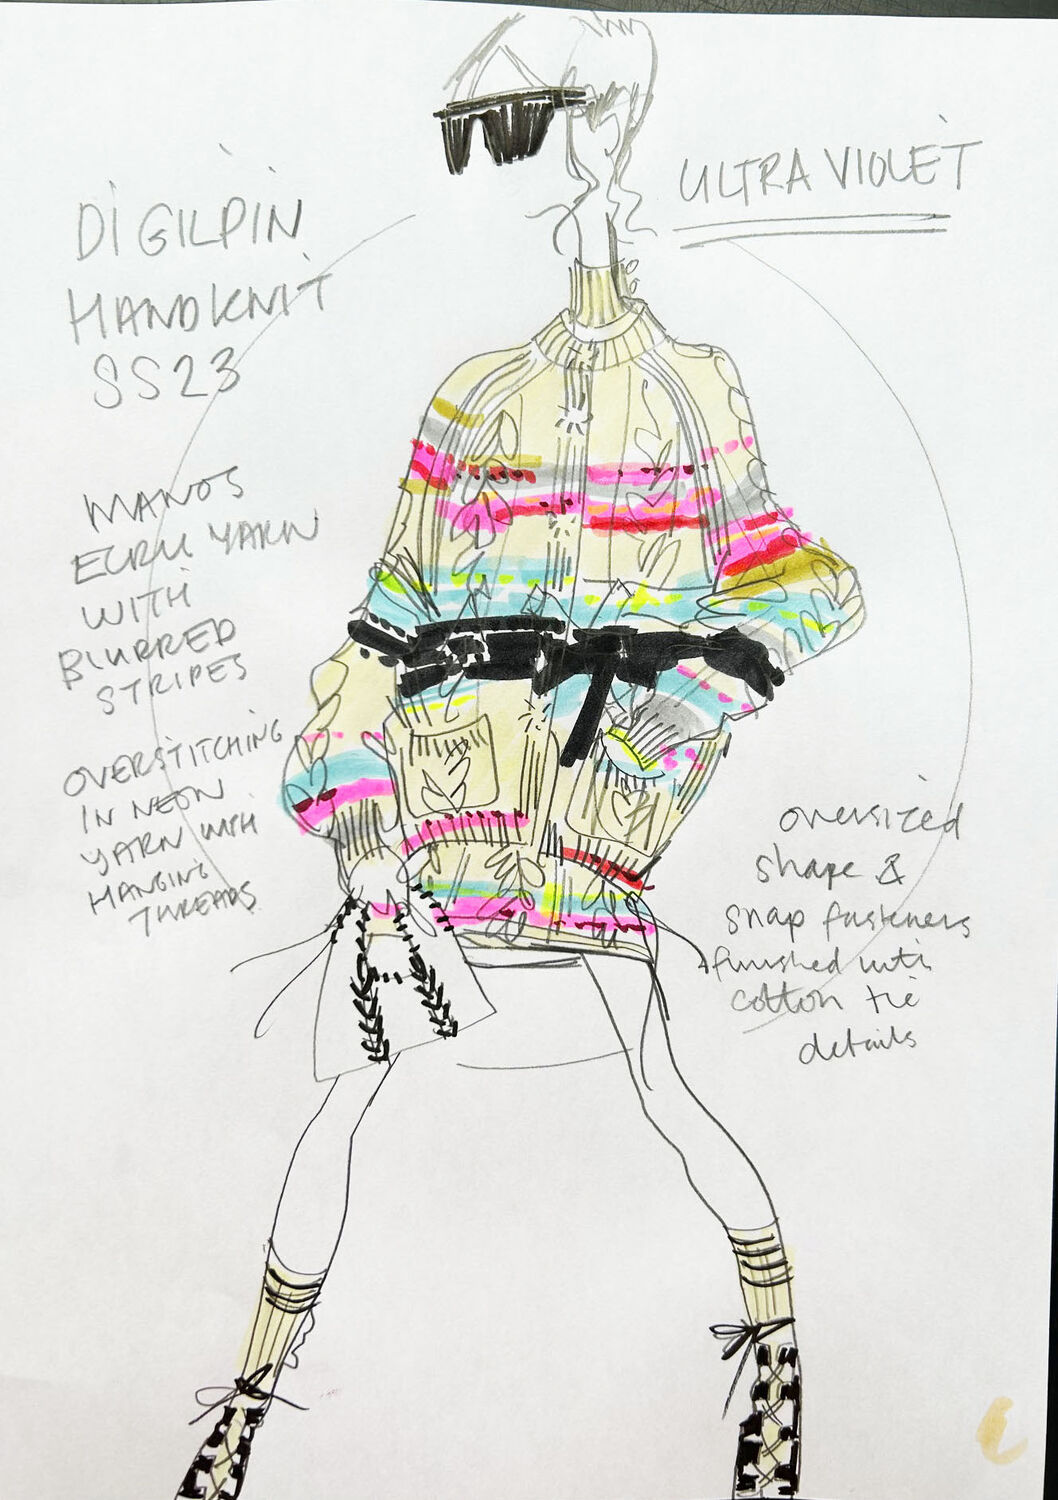 DI GILPIN
HANDKNIT
SS23
ULTRA VIOLET
MANOS
ECRU YARN
WITH
BLURRED
STRIPES
OVERSTITCHING
IN NEON
YARN WITH
HANGING
THREADS
oversized
shape &
snap fasteners
finished with
cotton tie
details